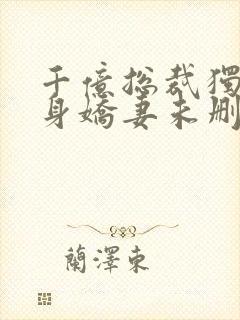 千億總裁獨
身嬌妻未刪
蘭澤東